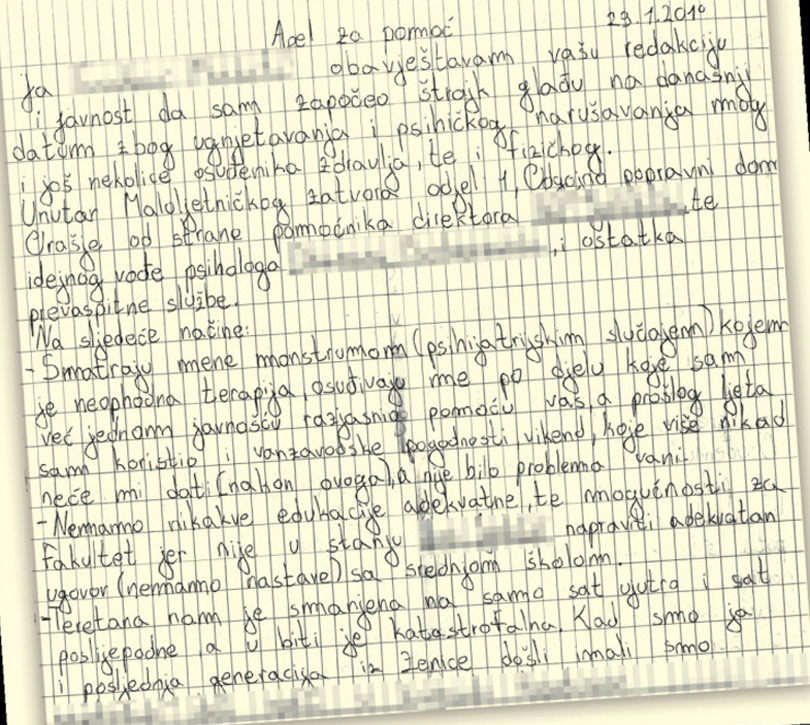 Apel za pomoć
29.1.2010
Ja obavještavam vašu redakciju
i javnost da sam započeo štrajk glađu na današnji
datum, zbog ugnjetavanja i psihičkog narušavanja mog
i još nekolice osuđenika zdravlja, te i fizičkog.
Unutar Maloljetničkog zatvora odjel 1, Odgojno popravni dom
Orašje od strane pomoćnika direktora te
idejnog vođe psihologa , i ostatka
prevaspitne službe.
Na sljedeće načine:
- Smatraju mene monstrumom (psihijatrijskim slučajem) kojem
je neophodna terapija, osuđivaju me po djelu koje sam
već jednom javnošću razjasnio pomoću vas, a prošlog ljeta
sam koristio i vanzavodske pogodnosti, vikend, koje više nikad
neće mi dati (nakon ovoga), a nije bilo problema vani.
- Nemamo nikakve edukacije adekvatne, te mogućnosti za
fakultet jer nije u stanju napraviti adekvatan
ugovor (nemamo nastave) sa srednjom školom.
- Teretana nam je smanjena na samo sat ujutro i sat
poslijepodne, a u biti je katastrofalna. Kad smo ja
i posljednja generacija iz Zenice došli imali smo